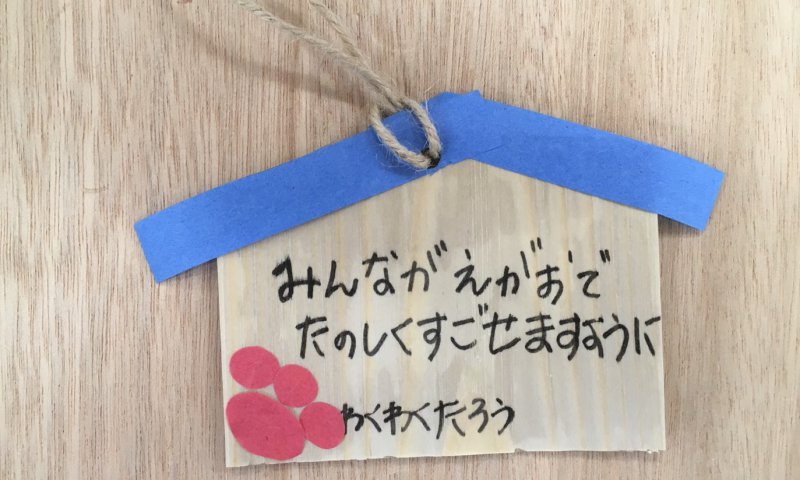 みんながえがおで
たのしくすごせますように
わくわくたろう